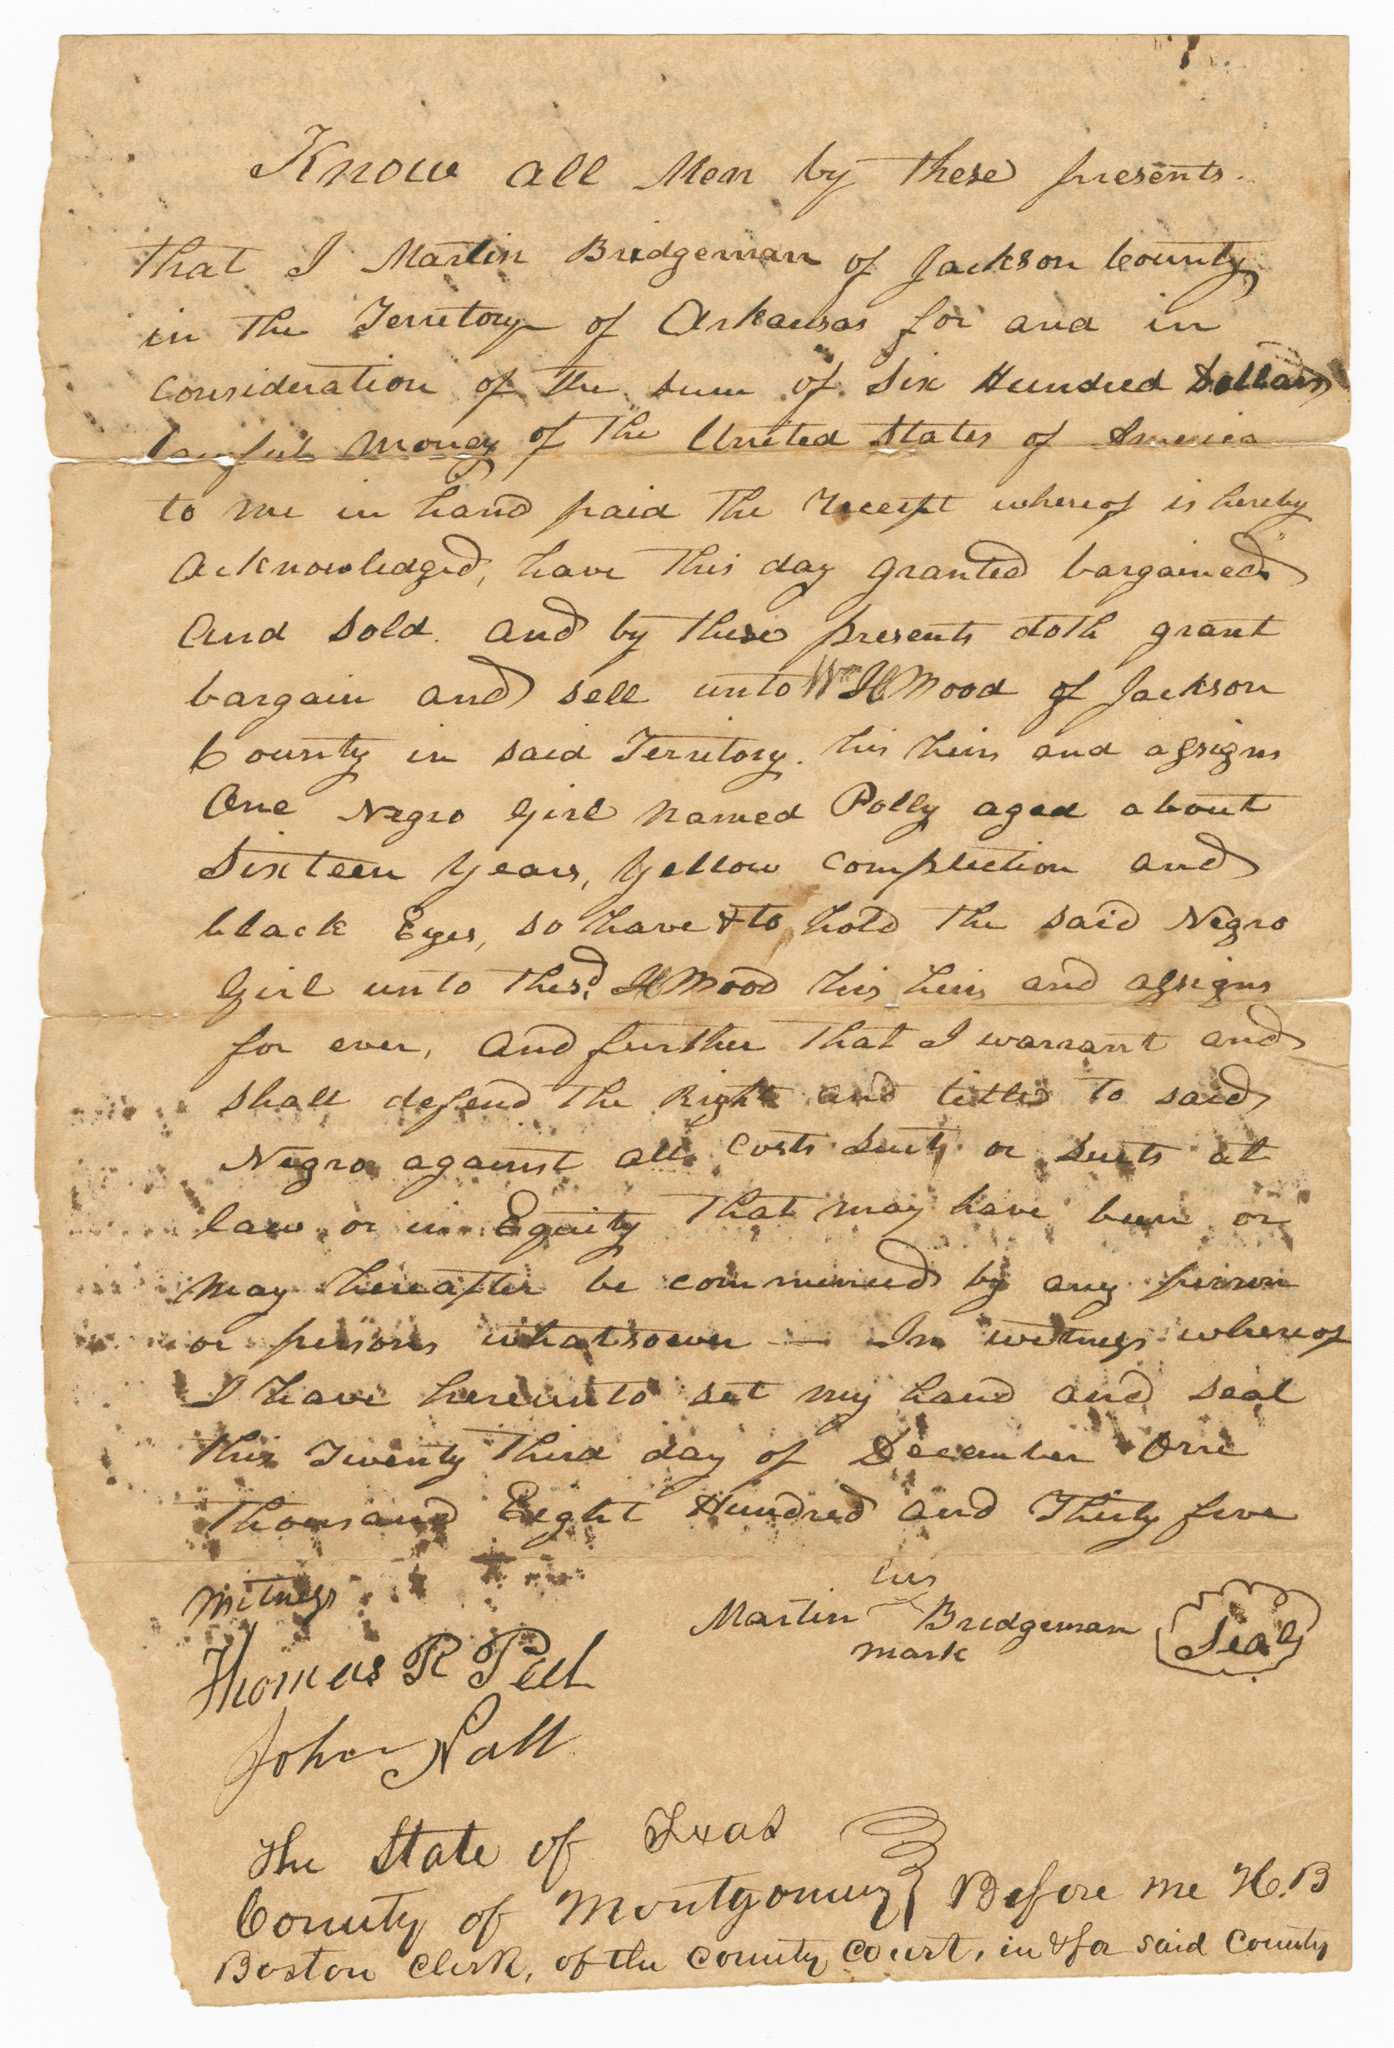 Know all Men by these presents.
that I Martin Bridgeman of Jackson County
in the Territory of Arkansas for and in
Consideration of the sum of Six Hundred Dollars
lawful money of the United States of America
to me in hand paid the receipt whereof is hereby
acknowledged, have this day granted bargained
and sold. and by these presents doth grant
bargain and sell unto Wm H Wood of Jackson
County in said Territory. his heirs and assigns
One Negro Girl named Polly aged about
Sixteen Years, Yellow complection and
black Eyes, so have & to hold the said Negro
Girl unto the sd. H Wood his heirs and assigns
for ever, and further that I warrant and
shall defend the Right and title to said
Negro against all Costs Suits or Suits at
law or in Equity that may have been or
may hereafter be commenced by any person
or persons whatsoever — In witness whereof
I have hereunto set my hand and seal
this Twenty third day of December One
thousand Eight Hundred and Thirty five
Witness
his
Martin Bridgeman Seal
mark
Thomas R Peel
John
The State of Texas
County of Montgomery } Before me H. B
Boston Clerk, of the County Court, in & for said County